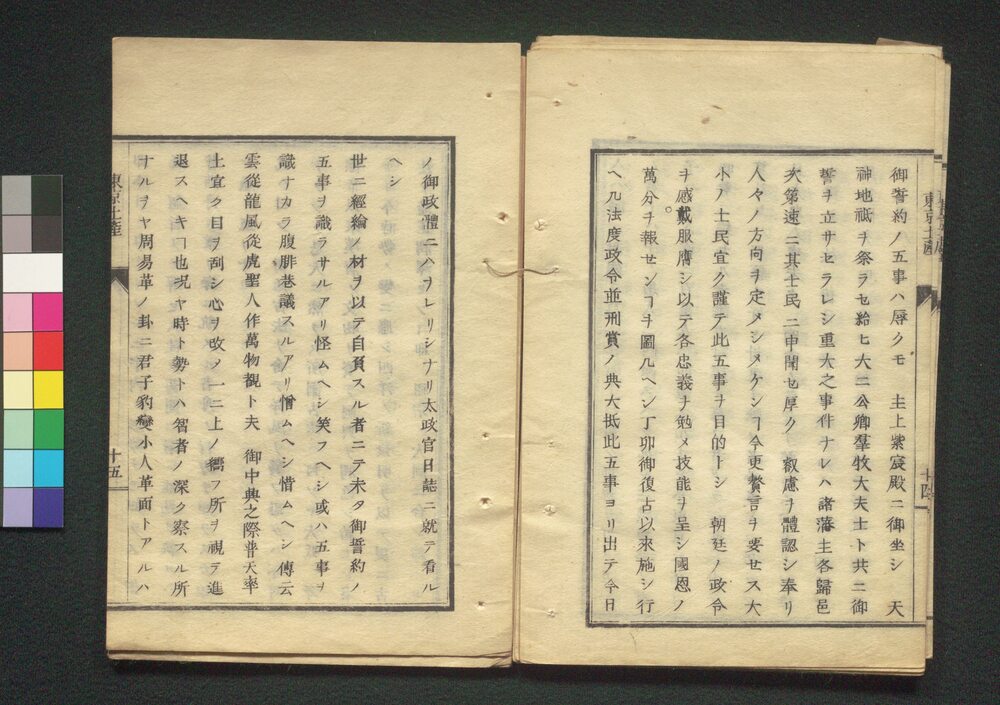 御誓約ノ五事ハ辱クモ　主上紫宸殿ニ御坐シ　天
神地祇ヲ祭ラセ給ヒ大ニ公卿羣牧大夫士ト共ニ御
誓ヲ立サセラレシ重大之事件ナレハ諸藩主各歸邑
次第速ニ其士民ニ申聞セ厚ク　叡慮ヲ體認シ奉リ
人々ノ方向ヲ定メシメケンヿ今更贅言ヲ要セス大
小ノ士民宜ク謹テ此五事ヲ目的トシ　朝廷ノ政令
ヲ感戴服膺シ以テ各忠義ヲ勉メ技能ヲ呈シ國恩ノ
萬分ヲ報センヿヲ圖凡ヘシ丁卯御復古以來施シ行
ヘ凡法度政令並刑賞ノ典大抵此五事ヨリ出テ今日
東京土産
十四
ノ御政體ニハヲレリシナリ太政官日誌ニ就テ看ル
ヘシ
世ニ經綸ノ材ヲ以テ自負スル者ニテ未タ御誓約ノ
五事ヲ識ラサルアリ怪ムヘシ笑フヘシ或ハ五事ヲ
識ナカラ腹腓巷議スルアリ憎ムヘシ惜ムヘシ傳云
雲從龍風從虎聖人作萬物覩ト夫　御中興之際普天率
土宜ク目ヲ刮シ心ヲ改メ一ニ上ノ嚮フ所ヲ視テ進
退スヘキヿ也况ヤ時ト勢トハ智者ノ深ク察スル所
ナルヲヤ周易革ノ卦ニ君子豹變小人革面トアルハ
東京土産
十五